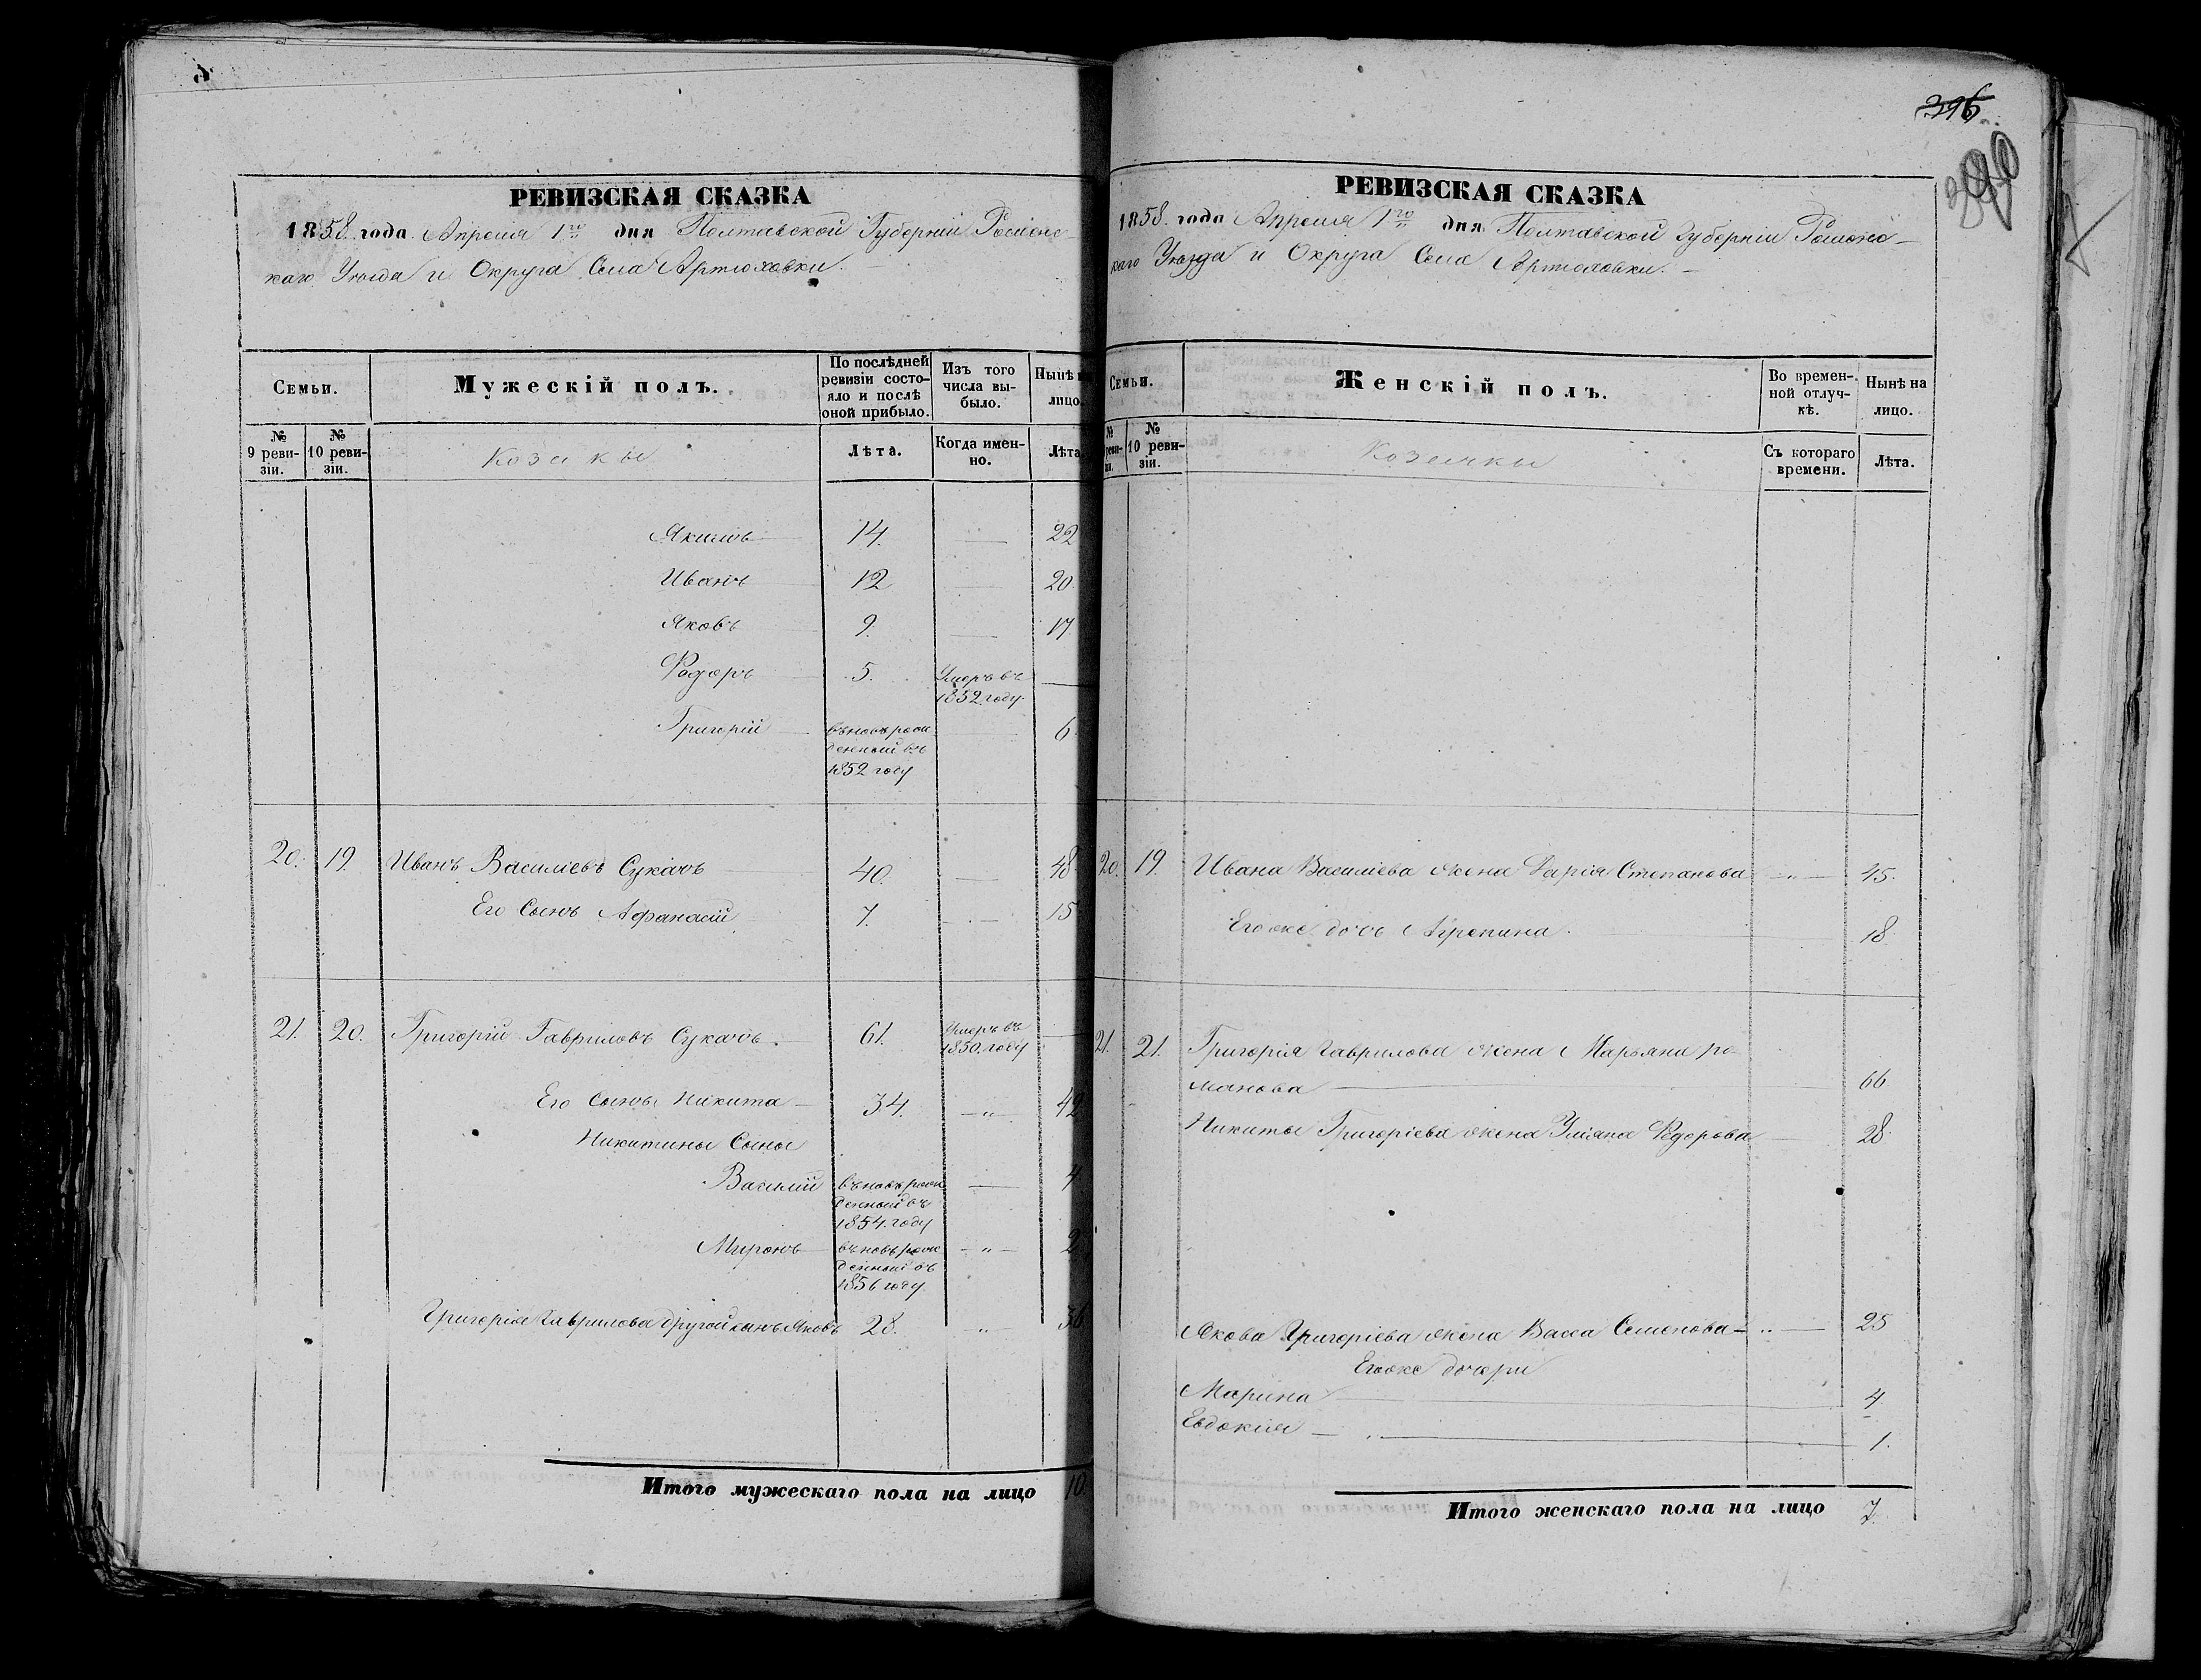 РЕВИЗСКАЯ СКАЗКА
1858. года. Апреля 1го дня Полтавской Губерніи Роменс-
каго Уезда и Округа Села Артюховки.
Семьи.
Мужескій полъ.
По послѣдней ревизіи состо-яло и послѣ оной прибыло.
Изъ того числа вы-было.
Нынѣ
лицо
№ 9 реви-зіи.
№ 10 реви-зіи.
Козаки
Лѣта.
Когда имен-но.
Лѣта
Якимъ 14. — 22
Иванъ 12 — 20.
Яковъ 9. — 17.
Федоръ 5. Умеръ въ
1852 году. —
Григорій вьновь рож — 6
денный въ
1852 году
20. 19. Иванъ Василіевъ Сукачъ 40. — 48
Его Сынъ Афанасій 7. — 15
21. 20. Григорій Гавриловъ Сукачъ. 61. Умеръ въ —
1850. году
Его Сынъ Никита 34. — " — 42
Никитины Сыны
Василій вьновь рож — 4
денный въ
1854. году
Миронъ вьновь рож — " — 2
денный въ
1856 году
Григорія Гаврилова другой сынъ Яковъ 28. " 36
Итого мужескаго пола на лицо 10
396
РЕВИЗСКАЯ СКАЗКА
1858. года Апреля 1го дня Полтавской Губерніи Роменс-
каго Уезда и Округа Села Артюховки. —
Семьи.
Женскій полъ.
Во времен-ной отлуч-кѣ.
Нынѣ на лицо.
№
10 реви-зіи.
Козачки
Съ котораго времени.
Лѣта.
20. 19. Ивана Василіева жена Дарія Степанова — " — 45.
Его же дочь Агрепина. 18.
21. 21. Григорія Гаврилова жена Марьяна Ро-
манова — 66
Никиты Григоріева жена Уліяна Федорова 28.
Якова Григоріева жена Васса Семенова — " — 25
Его же дочери
Марина — 4
Евдокия — " — 1.
Итого женскаго пола на лицо 7.